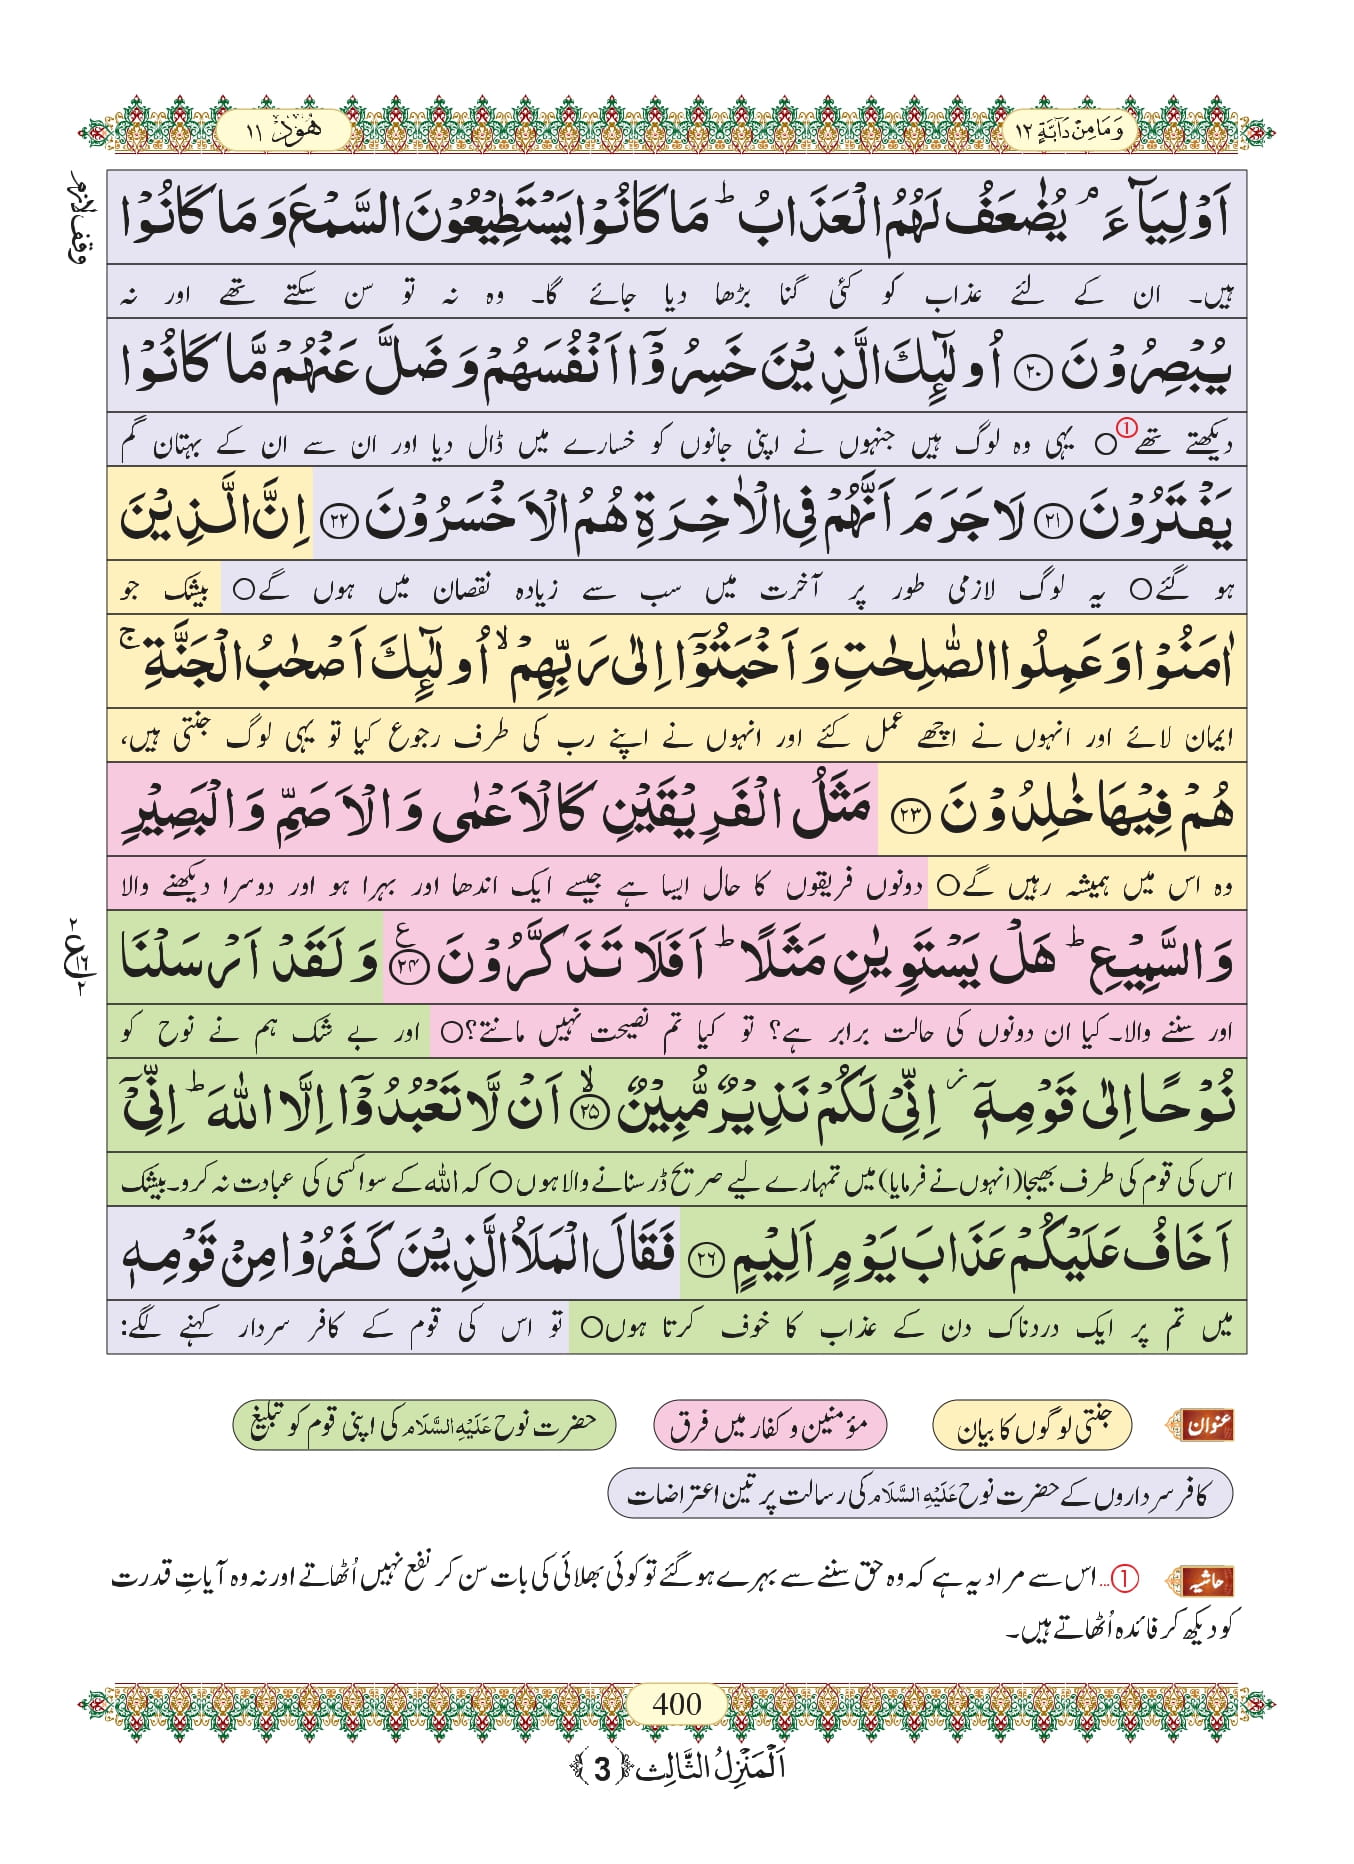 وَ مَا مِنْ دَآبَّةٍ ۱۲
هُوْد ۱۱
اَوْلِیَآءَ ۘ یُضٰعَفُ لَهُمُ الْعَذَابُ ؕ مَا كَانُوْا یَسْتَطِیْعُوْنَ السَّمْعَ وَ مَا كَانُوْا
وقف لازم
ہیں۔ ان کے لئے عذاب کو کئی گنا بڑھا دیا جائے گا۔ وہ نہ تو سن سکتے تھے اور نہ
یُبْصِرُوْنَ ﴿۲۰﴾ اُولٰٓىٕكَ الَّذِیْنَ خَسِرُوْۤا اَنْفُسَهُمْ وَ ضَلَّ عَنْهُمْ مَّا كَانُوْا
دیکھتے تھے ① ○ یہی وہ لوگ ہیں جنہوں نے اپنی جانوں کو خسارے میں ڈال دیا اور ان سے ان کے بہتان گم
یَفْتَرُوْنَ ﴿۲۱﴾ لَا جَرَمَ اَنَّهُمْ فِی الْاٰخِرَةِ هُمُ الْاَخْسَرُوْنَ ﴿۲۲﴾ اِنَّ الَّذِیْنَ
ہو گئے ○ یہ لوگ لازمی طور پر آخرت میں سب سے زیادہ نقصان میں ہوں گے ○ بیشک جو
اٰمَنُوْا وَ عَمِلُوا الصّٰلِحٰتِ وَ اَخْبَتُوْۤا اِلٰى رَبِّهِمْ ۙ اُولٰٓىٕكَ اَصْحٰبُ الْجَنَّةِ ۚ
ایمان لائے اور انہوں نے اچھے عمل کئے اور انہوں نے اپنے رب کی طرف رجوع کیا تو یہی لوگ جنتی ہیں،
هُمْ فِیْهَا خٰلِدُوْنَ ﴿۲۳﴾ مَثَلُ الْفَرِیْقَیْنِ كَالْاَعْمٰى وَ الْاَصَمِّ وَ الْبَصِیْرِ
وہ اس میں ہمیشہ رہیں گے ○ دونوں فریقوں کا حال ایسا ہے جیسے ایک اندھا اور بہرا ہو اور دوسرا دیکھنے والا
وَ السَّمِیْعِ ؕ هَلْ یَسْتَوِیٰنِ مَثَلًا ؕ اَفَلَا تَذَكَّرُوْنَ ﴿۲۴﴾ ع وَ لَقَدْ اَرْسَلْنَا
۲ ع ۱۶ ۲
اور سننے والا۔ کیا ان دونوں کی حالت برابر ہے؟ تو کیا تم نصیحت نہیں مانتے؟ ○ اور بے شک ہم نے نوح کو
نُوْحًا اِلٰى قَوْمِهٖۤ ؗ اِنِّیْ لَكُمْ نَذِیْرٌ مُّبِیْنٌ ﴿۲۵﴾ ۙ اَنْ لَّا تَعْبُدُوْۤا اِلَّا اللّٰهَ ؕ اِنِّیْۤ
اس کی قوم کی طرف بھیجا (انہوں نے فرمایا) میں تمہارے لیے صریح ڈر سنانے والا ہوں ○ کہ اللہ کے سوا کسی کی عبادت نہ کرو۔ بیشک
اَخَافُ عَلَیْكُمْ عَذَابَ یَوْمٍ اَلِیْمٍ ﴿۲۶﴾ فَقَالَ الْمَلَاُ الَّذِیْنَ كَفَرُوْا مِنْ قَوْمِهٖ
میں تم پر ایک دردناک دن کے عذاب کا خوف کرتا ہوں ○ تو اس کی قوم کے کافر سردار کہنے لگے:
عنوان جنتی لوگوں کا بیان مؤمنین و کفار میں فرق حضرت نوح عَلَیْهِ السَّلَام کی اپنی قوم کو تبلیغ
کافر سرداروں کے حضرت نوح عَلَیْهِ السَّلَام کی رسالت پر تین اعتراضات
حاشیہ ①... اس سے مراد یہ ہے کہ وہ حق سننے سے بہرے ہو گئے تو کوئی بھلائی کی بات سن کر نفع نہیں اُٹھاتے اور نہ وہ آیاتِ قدرت
کو دیکھ کر فائدہ اُٹھاتے ہیں۔
400
اَلْمَنْزِلُ الثَّالِث ﴿3﴾